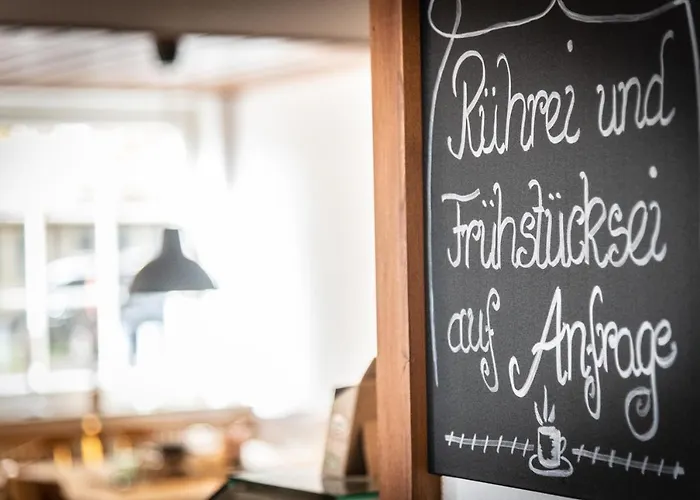 Rührei und
Frühstücksei
auf Anfrage